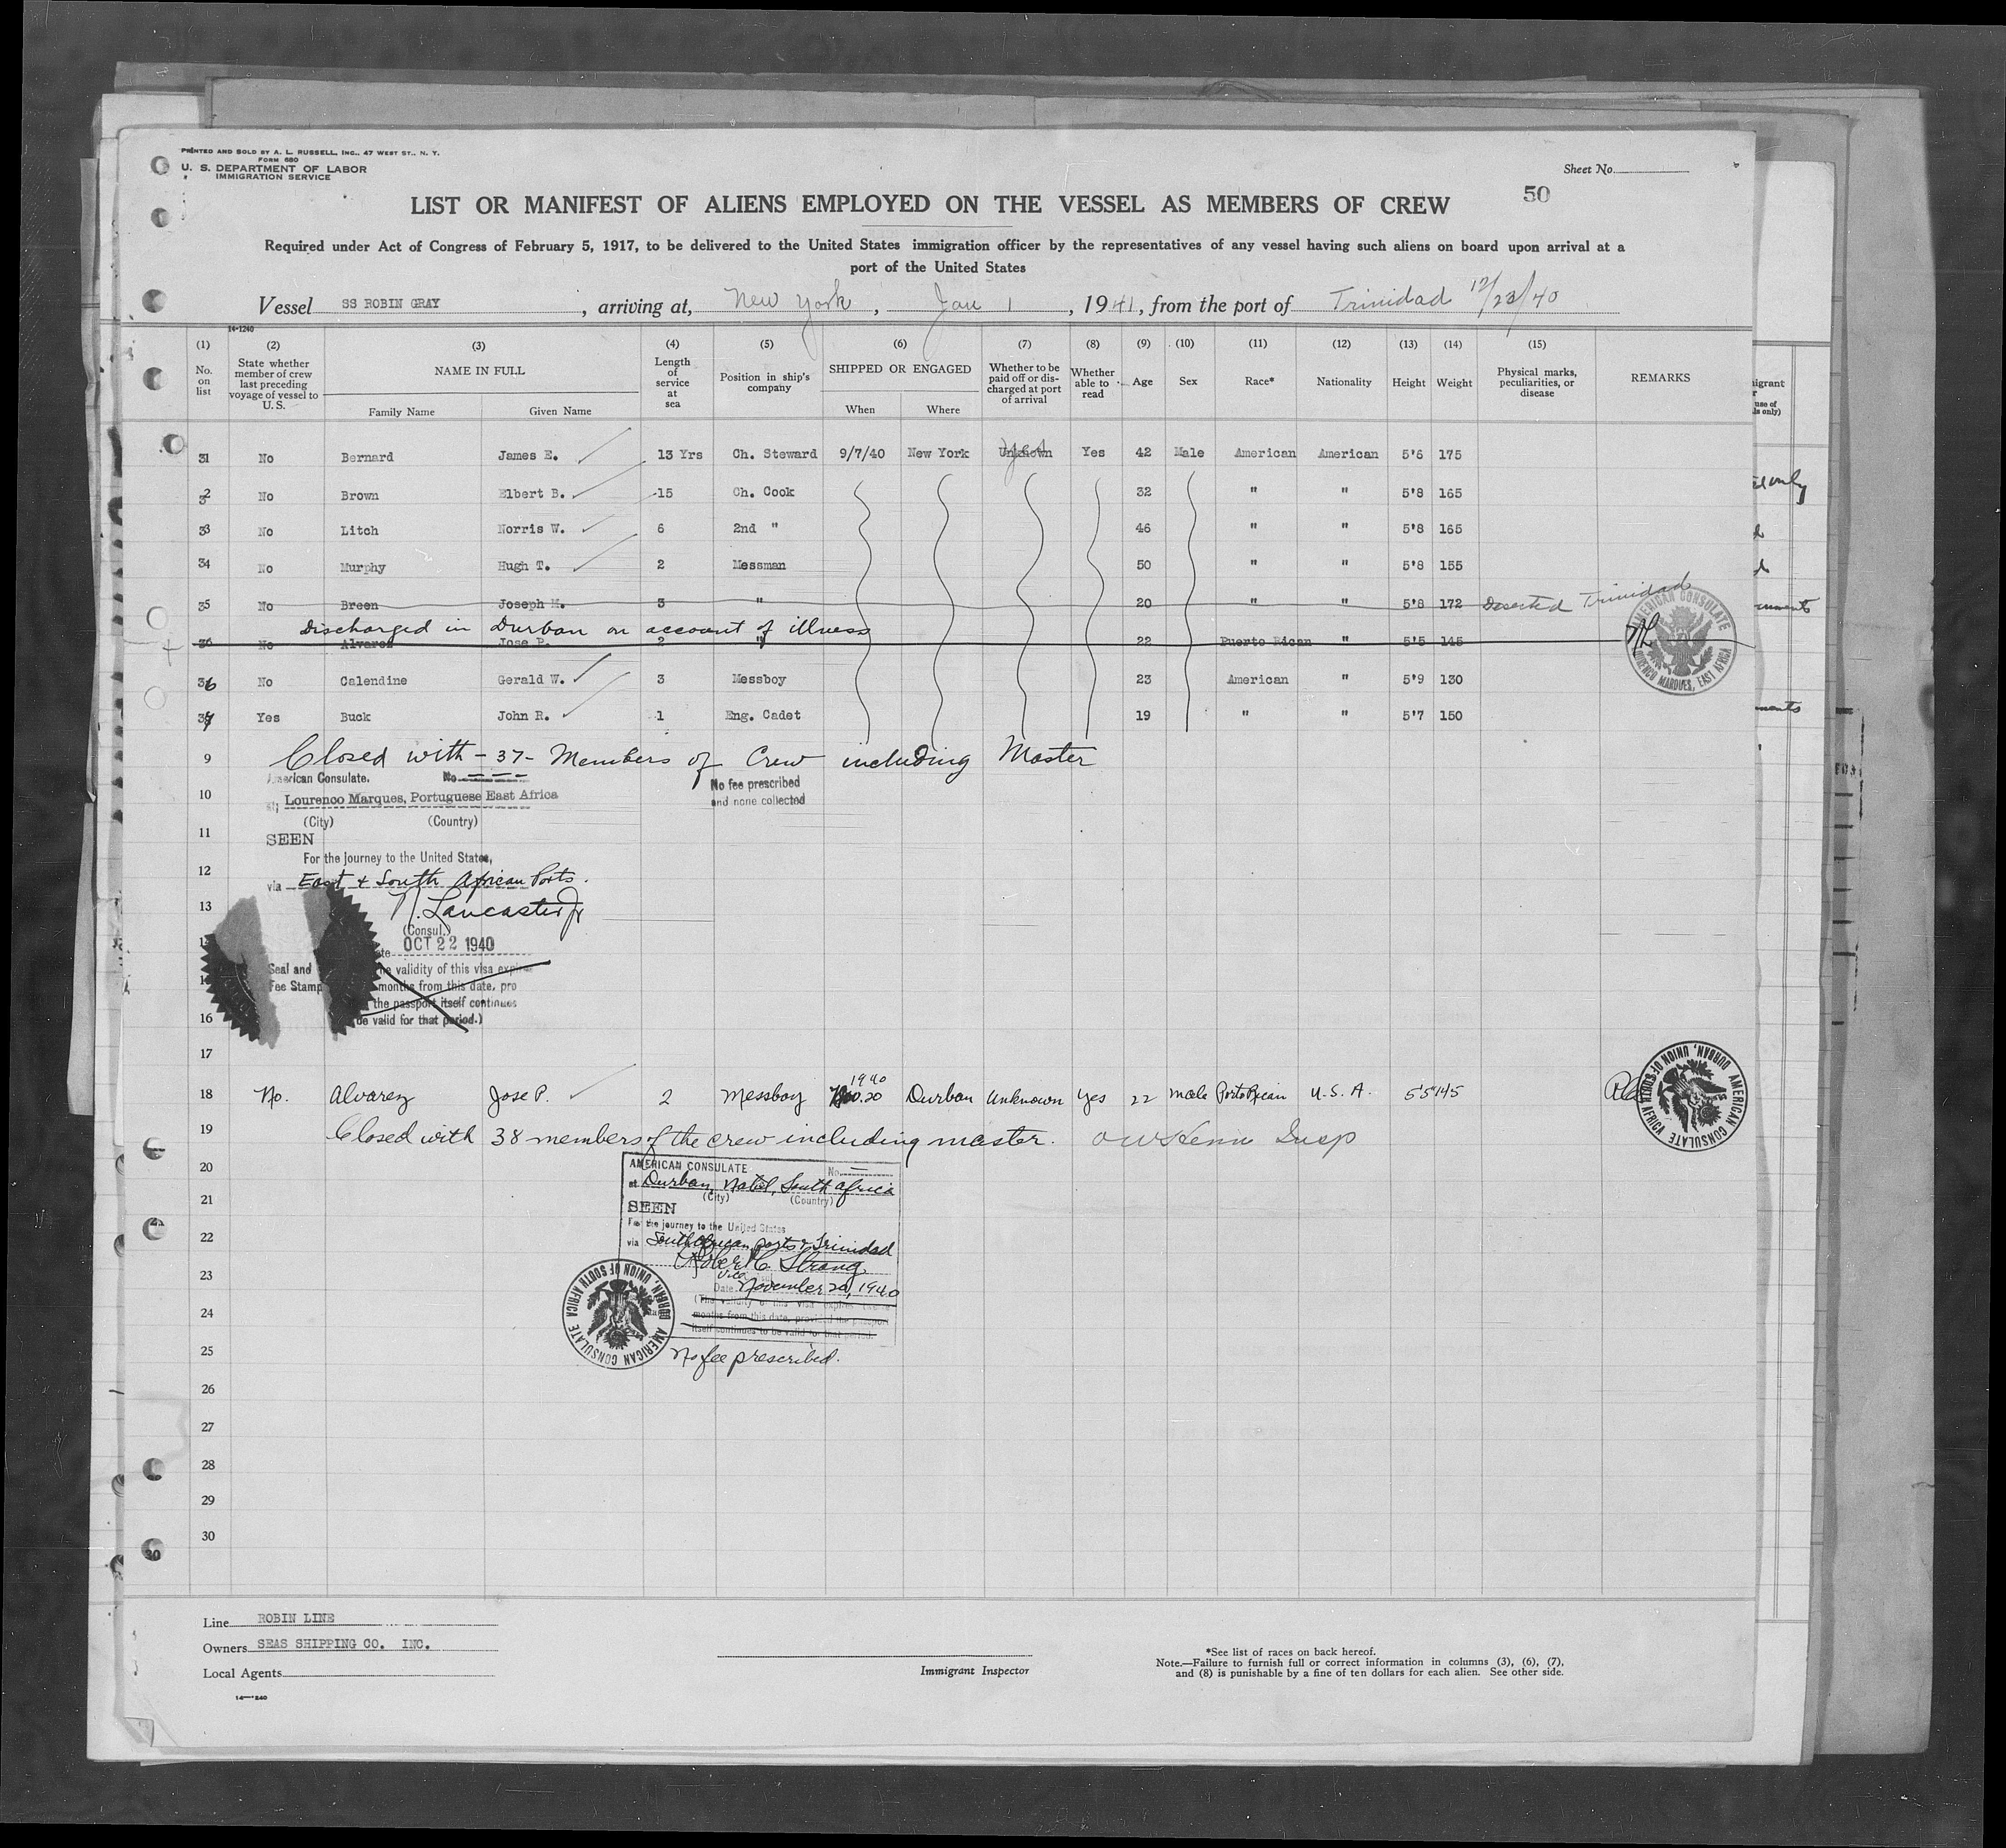 PRINTED AND SOLD BY A. L. RUSSELL, INC., 47 WEST ST., N. Y.
FORM 680
U. S. DEPARTMENT OF LABOR
IMMIGRATION SERVICE
Sheet No.
50
LIST OR MANIFEST OF ALIENS EMPLOYED ON THE VESSEL AS MEMBERS OF CREW
Required under Act of Congress of February 5, 1917, to be delivered to the United States immigration officer by the representatives of any vessel having such aliens on board upon arrival at a
port of the United States
Vessel SS ROBIN GRAY, arriving at, New York, Jan 1, 1941, from the port of Trinidad 12/23/40
14-1240
(1) No. on list
(2) State whether member of crew last preceding voyage of vessel to U. S.
(3) NAME IN FULL Family Name Given Name
(4) Length of service at sea
(5) Position in ship's company
(6) SHIPPED OR ENGAGED When Where
(7) Whether to be paid off or discharged at port of arrival
(8) Whether able to read
(9) Age
(10) Sex
(11) Race*
(12) Nationality
(13) Height
(14) Weight
(15) Physical marks, peculiarities, or disease
REMARKS
31 No Bernard James E. 13 Yrs Ch. Steward 9/7/40 New York Unknown Yes 42 Male American American 5'6 175
32 No Brown Elbert B. 15 Ch. Cook 32 " " 5'8 165
33 No Litch Norris W. 6 2nd " 46 " " 5'8 165
34 No Murphy Hugh T. 2 Messman 50 " " 5'8 155
35 No Breen Joseph M. 3 " 20 " " 5'8 172 Deserted Trinidad
Discharged in Durban on account of illness
36 No Alvarez Jose P. 2 " 22 Puerto Rican " 5'5 145
AMERICAN CONSULATE
LOURENCO MARQUES, EAST AFRICA
36 No Calendine Gerald W. 3 Messboy 23 American " 5'9 130
37 Yes Buck John R. 1 Eng. Cadet 19 " " 5'7 150
9 Closed with - 37 - Members of Crew including Master
American Consulate. No.
No fee prescribed
and none collected
10 Lourenco Marques, Portuguese East Africa
(City) (Country)
11 SEEN
For the journey to the United States,
12 via East & South African Ports.
13 N. Lancaster Jr
(Consul.)
OCT 22 1940
Seal and
Fee Stamp
he validity of this visa expires
months from this date, pro
the passport itself continues
be valid for that period.)
16
17
1940
18 No. Alvarez Jose P. 2 Messboy Nov. 20 Durban Unknown Yes 22 male Porto Rican U.S.A. 5'5" 145
AMERICAN CONSULATE
DURBAN, UNION OF SOUTH AFRICA
19 Closed with 38 members of the crew including master.
20 AMERICAN CONSULATE No.
at Durban, Natal, South Africa
21 (City) (Country)
SEEN
For the journey to the United States
22 via South African ports & Trinidad
Robert C. Strong
23 Vice
Date November 20, 1940
(The validity of this visa expires
24 months from this date, provided the passport
itself continues to be valid for that period.
AMERICAN CONSULATE
DURBAN, UNION OF SOUTH AFRICA
25 No fee prescribed.
26
27
28
29
30
Line ROBIN LINE
Owners SEAS SHIPPING CO. INC.
Local Agents
14-1240
Immigrant Inspector
*See list of races on back hereof.
Note.—Failure to furnish full or correct information in columns (3), (6), (7),
and (8) is punishable by a fine of ten dollars for each alien. See other side.